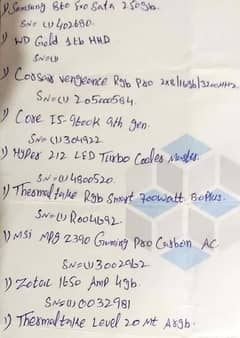 1) Samsung 860 Evo Sata 250gb.
SN= (1) 402680.
1) WD Gold 1tb HHD
SN= (1)
1) Corsair vengeance Rgb Pro 2x8/16gb/3200MHz
SN= (1) 205000584.
1) Core I5-9600K 9th gen.
SN= (1) 304922
1) Hyper 212 LED Turbo Cooler Master.
SN= (1) 4800520.
1) Thermaltake Rgb Smart 700watt 80Plus.
SN= (1) R004692
1) MSI MPG Z390 Gaming Pro Carbon AC
SN= (1) 3002962
1) Zotac 1650 Amp 4gb.
SN= (1) 0032981
1) Thermaltake Level 20 Mt Argb.